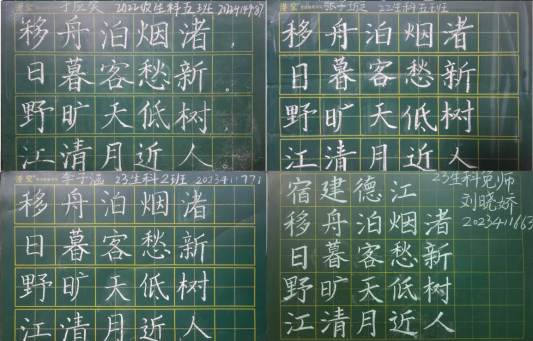 2022级生科五班
移舟泊烟渚,
日暮客愁新。
野旷天低树,
江清月近人。
22生科五班
移舟泊烟渚
日暮客愁新
野旷天低树
江清月近人
李子涵 23生科2班
移舟泊烟渚
日暮客愁新
野旷天低树
江清月近人
宿建德江 23生科免师
刘晓娇
移舟泊烟渚
日暮客愁新
野旷天低树
江清月近人